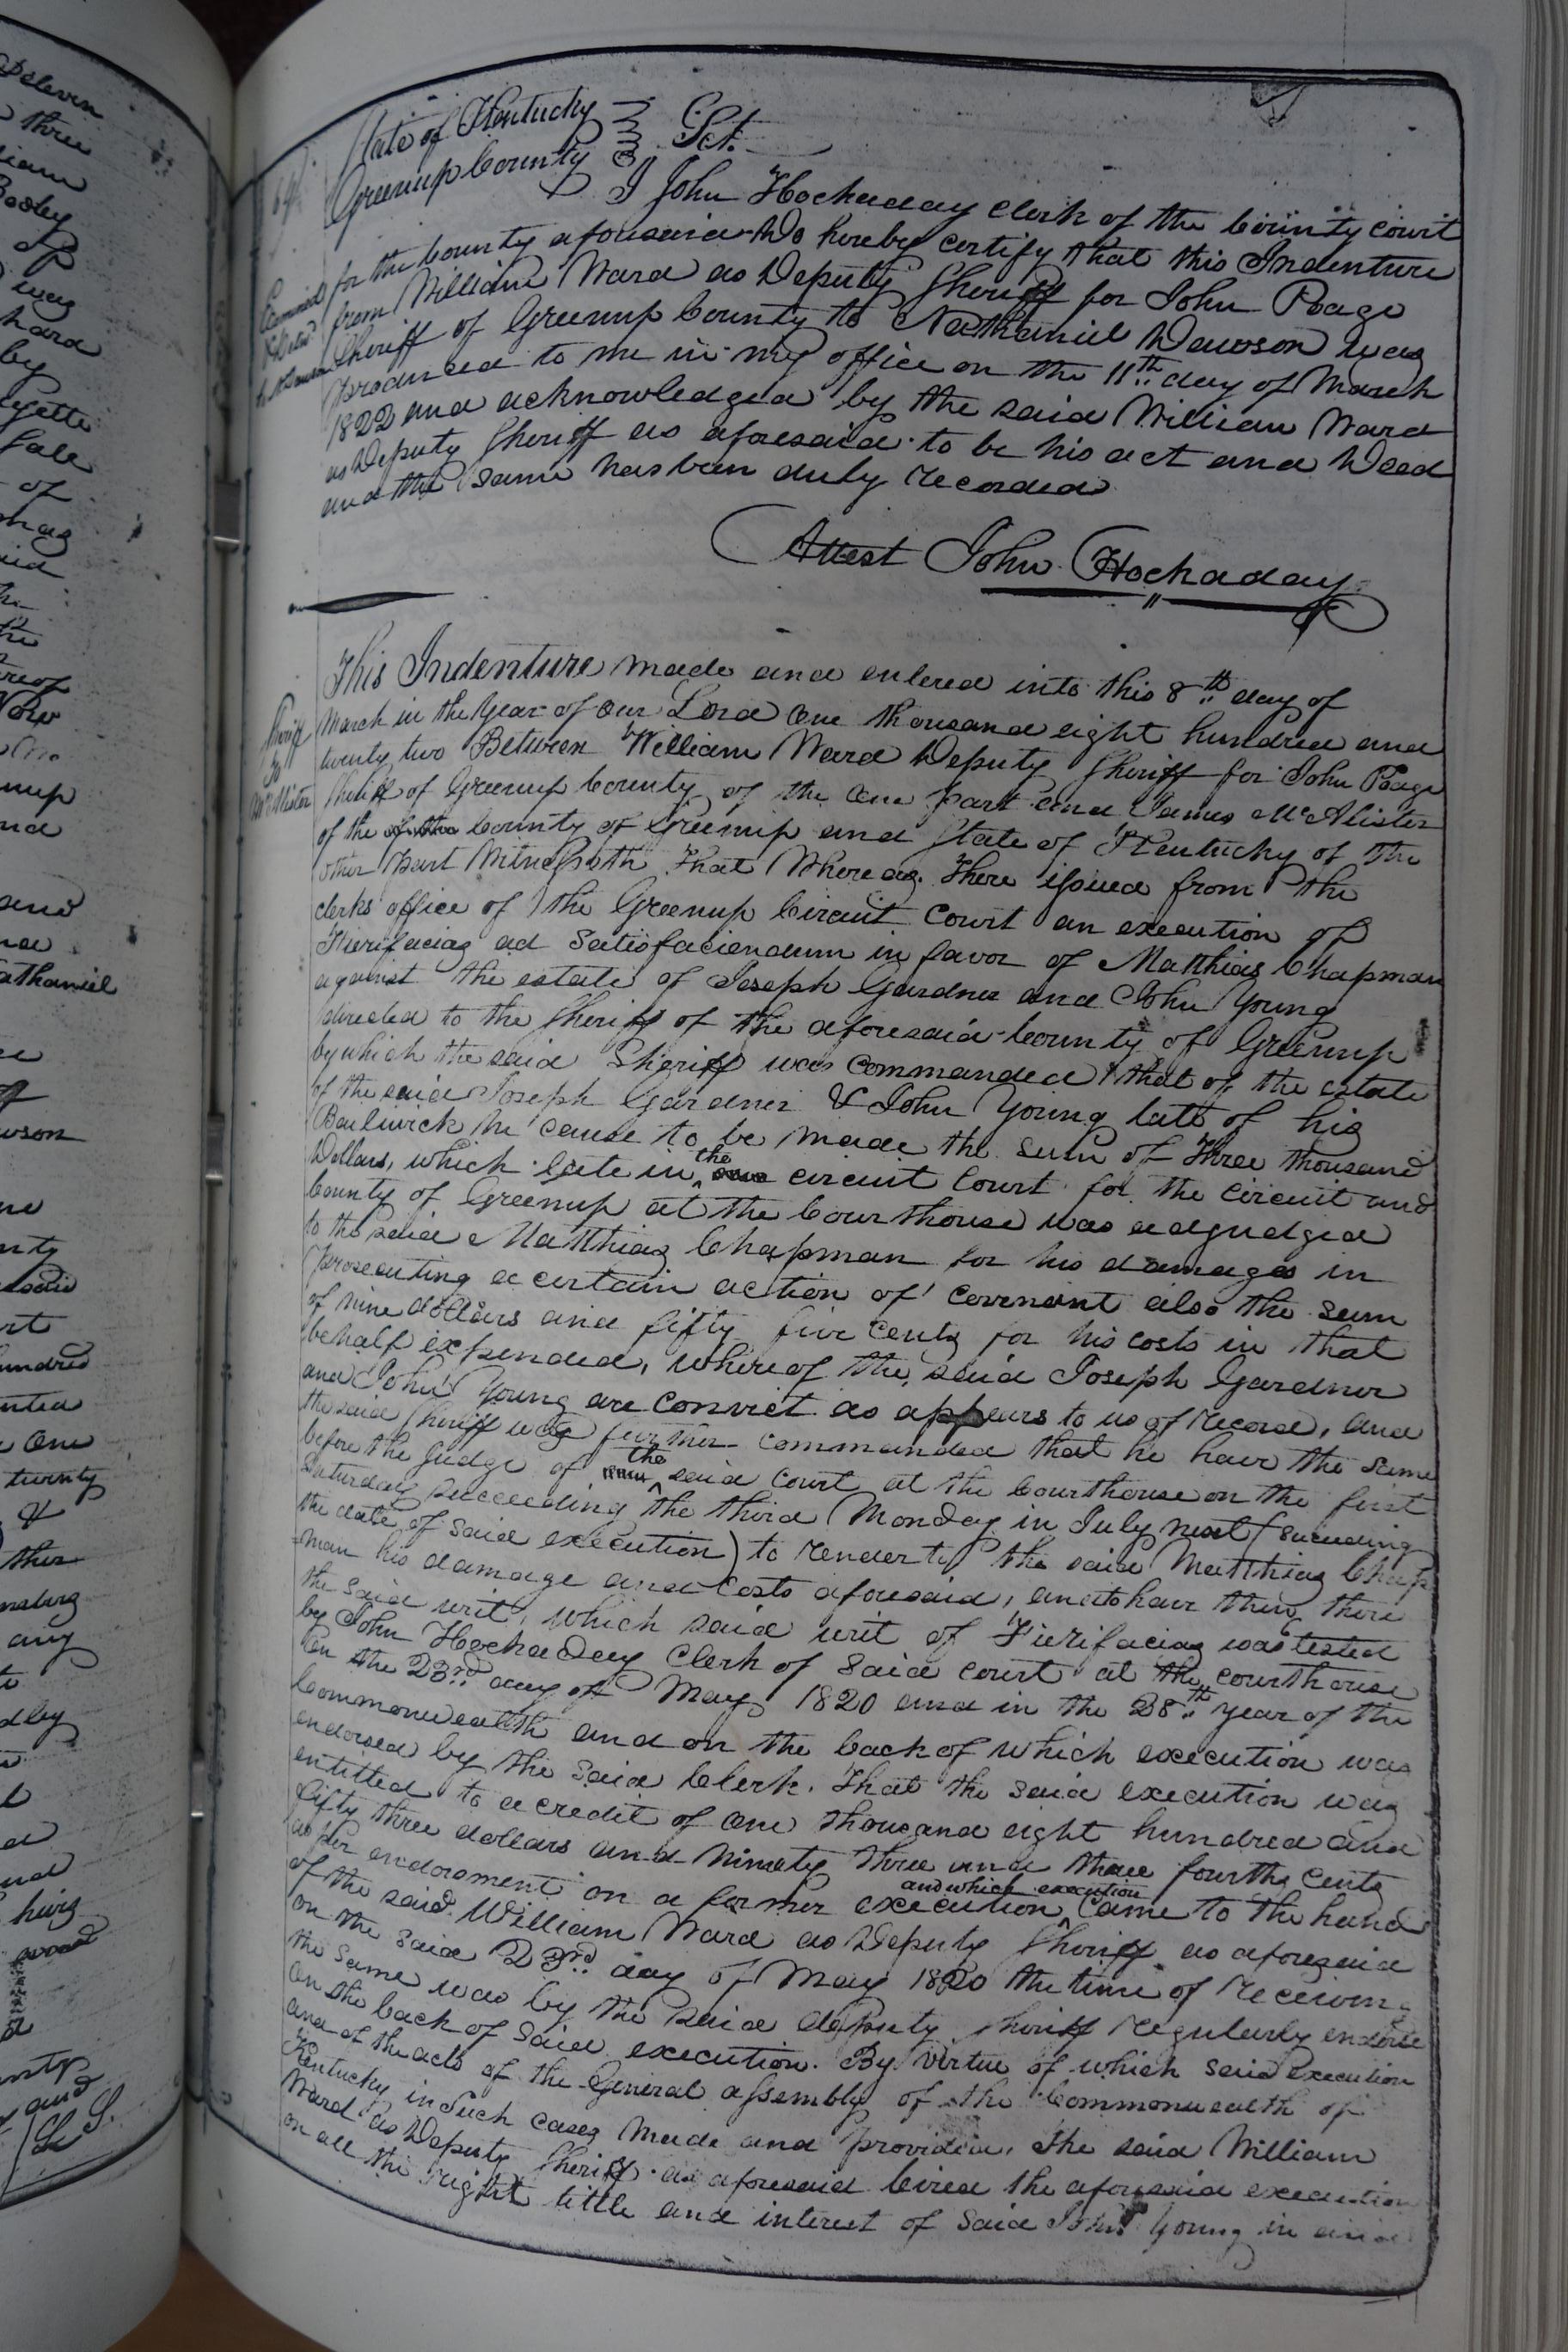 State of Kentucky
Greenup County Sct.
I John Hockaday Clerk of the County Court
for the County aforesaid Do hereby certify that this Indenture
from William Ward as Deputy Sheriff for John Poage
Sheriff of Greenup County to Nathaniel Dawson was
produced to me in my office on the 11th day of March
1822 and acknowledged by the said William Ward
as Deputy Sheriff as aforesaid to be his act and Deed
and the same has been duly recorded
Attest John Hockaday
Sheriff
To
McAlister
This Indenture made and entered into this 8th day of
March in the Year of our Lord One thousand eight hundred and
twenty two Between William Ward Deputy Sheriff for John Poage
Sheriff of Greenup County of the one part and James McAlister
of the of the County of Greenup and State of Kentucky of the
other part Witnesseth That Whereas There issued from the
clerks office of the Greenup Circuit Court an execution of
Fierifacias ad Satisfaciendum in favor of Matthias Chapman
against the estate of Joseph Gardner and John Young
directed to the Sheriff of the aforesaid County of Greenup
by which the said Sheriff was commanded that of the estate
of the said Joseph Gardner & John Young late of his
Bailiwick he cause to be made the sum of Three thousand
Dollars, which late in the circuit Court for the circuit and
County of Greenup at the Courthouse was adgudged
to the said Matthias Chapman for his damages in
prosecuting a certain action of Covenant also the sum
of nine dollars and fifty five cents for his costs in that
behalf expended, whereof the said Joseph Gardner
and John Young are convict as appears to us of record, and
the said Sheriff was further commanded that he have the same
before the Judge of the said Court at the Courthouse on the first
Saturday succeeding the third Monday in July next (succeeding
the date of said execution) to render to the said Matthias Chap
=man his damage and Costs aforesaid, and to have then there
the said writ, which said writ of Fierifacias was tested
by John Hockaday Clerk of said court at the courthouse
on the 23rd day of May 1820 and in the 28th year of the
Commonwealth and on the back of which execution was
endorsed by the said Clerk. That the said execution was
entitled to a credit of one thousand eight hundred and
fifty three dollars and ninety three and three fourths cents
as per endorsment on a former execution and which execution came to the hand
of the said William Ward as Deputy Sheriff as aforesaid
on the said 23rd day of May 1820 the time of receiving
the same was by the said deputy Sheriff regularly endorse
on the back of said execution. By Virtue of which said execution
and of the acts of the General assembly of the Commonwealth of
Kentucky in such cases made and provided, the said William
Ward as Deputy Sheriff as aforesaid levied the aforesaid execution
on all the right title and interest of said John Young in and